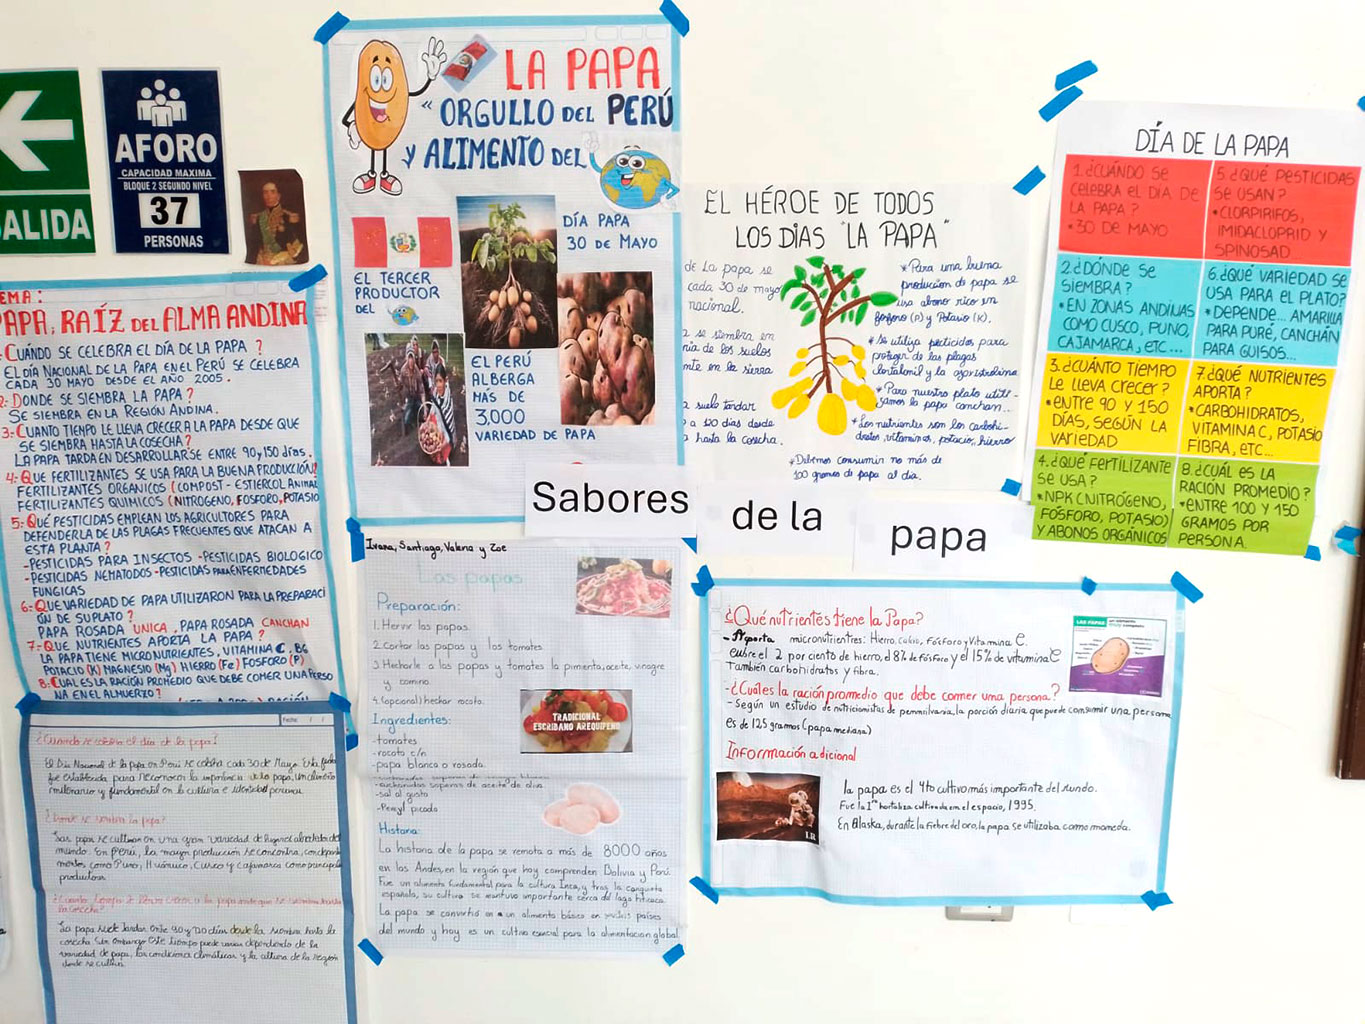 SALIDA
AFORO
CAPACIDAD MAXIMA
BLOQUE 2 SEGUNDO NIVEL
37
PERSONAS
LA PAPA
“ ORGULLO DEL PERÚ
Y ALIMENTO DEL
DÍA PAPA
30 DE MAYO
EL TERCER
PRODUCTOR
DEL
EL PERÚ
ALBERGA
MAS DE
3,000
VARIEDAD DE PAPA
EL HÉROE DE TODOS
LOS DIAS "LA PAPA"
de La papa se
cada 30 de mayo
nacional.
se siembra en
de los suelos
en la sierra
suele tardar
a 120 dias desde
hasta la cosecha.
*Para una buena
produccion de papa se
usa abono rico en
fosforo (P) y Potasio (K).
*Se utiliza pesticidas para
proteger de las plagas
*Para nuestro plato utili-
zamos la papa canchan...
*Los nutrientes son los carbohi-
dratos, vitaminas, potacio, hierro
*Debemos consumir no más de
100 gramos de papa al día.
DÍA DE LA PAPA
1. ¿CUÁNDO SE
CELEBRA EL DIA DE
LA PAPA?
•30 DE MAYO
5. ¿QUÉ PESTICIDAS
SE USAN?
•CLORPIRIFOS,
IMIDACLOPRID Y
SPINOSAD...
2. ¿DÓNDE SE
SIEMBRA?
•EN ZONAS ANDINAS
COMO CUSCO, PUNO,
CAJAMARCA, ETC...
6. ¿QUÉ VARIEDAD SE
USA PARA EL PLATO?
•DEPENDE... AMARILLA
PARA PURÉ, CANCHÁN
PARA GUISOS...
3. ¿CUÁNTO TIEMPO
LE LLEVA CRECER?
•ENTRE 90 Y 150
DÍAS, SEGÚN LA
VARIEDAD
7. ¿QUÉ NUTRIENTES
APORTA?
•CARBOHIDRATOS,
VITAMINA C, POTASIO
FIBRA, ETC...
4. ¿QUÉ FERTILIZANTE
SE USA?
•NPK (NITRÓGENO,
FÓSFORO, POTASIO)
Y ABONOS ORGÁNICOS
8. ¿CUÁL ES LA
RACIÓN PROMEDIO?
•ENTRE 100 Y 150
GRAMOS POR
PERSONA.
Sabores de la papa
EMA:
PAPA, RAÍZ DEL ALMA ANDINA
CUÁNDO SE CELEBRA EL DÍA DE LA PAPA ?
EL DÍA NACIONAL DE LA PAPA EN EL PERÚ SE CELEBRA
CADA 30 MAYO DESDE EL AÑO 2005.
2- DONDE SE SIEMBRA LA PAPA?
SE SIEMBRA EN LA REGIÓN ANDINA.
3- CUANTO TIEMPO LE LLEVA CRECER A LA PAPA DESDE QUE
SE SIEMBRA HASTA LA COSECHA?
LA PAPA TARDA EN DESARROLLARSE ENTRE 90 y 150 días.
4- QUE FERTILIZANTES SE USA PARA LA BUENA PRODUCCIÓN?
FERTILIZANTES ORGÁNICOS (COMPOST - ESTIERCOL ANIMAL
FERTILIZANTES QUIMICOS (NITROGENO, FOSFORO, POTASIO
5- QUÉ PESTICIDAS EMPLEAN LOS AGRICULTORES PARA
DEFENDERLA DE LAS PLAGAS FRECUENTES QUE ATACAN A
ESTA PLANTA?
-PESTICIDAS PARA INSECTOS -PESTICIDAS BIOLOGICO
-PESTICIDAS NEMATODOS -PESTICIDAS PARA ENFERMEDADES
FUNGICAS
6- QUE VARIEDAD DE PAPA UTILIZARON PARA LA PREPARACI
ÓN DE SU PLATO ?
PAPA ROSADA UNICA, PAPA ROSADA CANCHAN
7- QUE NUTRIENTES APORTA LA PAPA ?
LA PAPA TIENE MICRONUTRIENTES, VITAMINA C, B6
POTACIO (K) MAGNESIO (Mg) HIERRO (Fe) FOSFORO (P)
8- CUAL ES LA RACIÓN PROMEDIO QUE DEBE COMER UNA PERSO
NA EN EL ALMUERZO?
Fecha: / /
¿Cuando se celebra el día de la papa?
El Día Nacional de la papa en Perú se celebra cada 30 de Mayo. Esta fecha
fue establecida para reconocer la importancia de la papa, un alimento
milenario y fundamental en la cultura e identidad peruana.
¿Donde se siembra la papa?
Las papas se cultivan en una gran variedad de lugares alrededor del
mundo. En Perú, la mayor producción se concentra,
como Puno, Huánuco, Cusco y Cajamarca como principales
productores.
¿Cuánto tiempo le lleva crecer a la papa desde que se siembra hasta
la cosecha?
La papa suele tardar entre 90 y 120 días desde la siembra hasta la
cosecha. Sin embargo este tiempo puede variar dependiendo de la
variedad de papa, las condiciones climáticas y la altura de la región
donde se cultiva.
Ivana, Santiago, Valeria y Zoe
Las papas
Preparación:
1. Hervir las papas.
2. Cortar las papas y los tomates.
3. Hecharle a las papas y tomates la pimienta, aceite, vinagre
y comino.
4. (opcional) hechar rocoto.
Ingredientes:
-tomates
-rocoto c/n
-papa blanca o rosada.
-cucharadas soperas de aceite de oliva
-sal al gusto
-Perejil picado
TRADICIONAL
ESCRIBANO AREQUIPEÑO
Historia:
La historia de la papa se remota a más de 8000 años
en los Andes, en la región que hoy comprenden Bolivia y Perú.
Fue un alimento fundamental para la cultura Inca, y tras la conquista
española, su cultivo se mantuvo importante cerca del lago titicaca.
La papa se convirtió en un alimento básico en muchos países
del mundo y hoy es un cultivo esencial para la alimentación global.
¿Qué nutrientes tiene la Papa?
- Aporta micronutrientes: Hierro, cubio, Fósforo y Vitamina C.
cubre el 2 por ciento de hierro, el 8% de fósforo y el 15% de vitamina C
También carbohidratos y fibra.
-¿Cuál es la ración promedio que debe comer una persona?
- Según un estudio de nutricionistas de pennsilvaria, la porción diaria que puede consumir una persona
es de 125 gramos (papa mediana)
Información adicional
LAS PAPAS
la papa es el 4to cultivo más importante del mundo.
Fue la 1ra hortaliza cultivada en el espacio, 1995.
En Alaska, durante la fiebre del oro, la papa se utilizaba como moneda.
LR